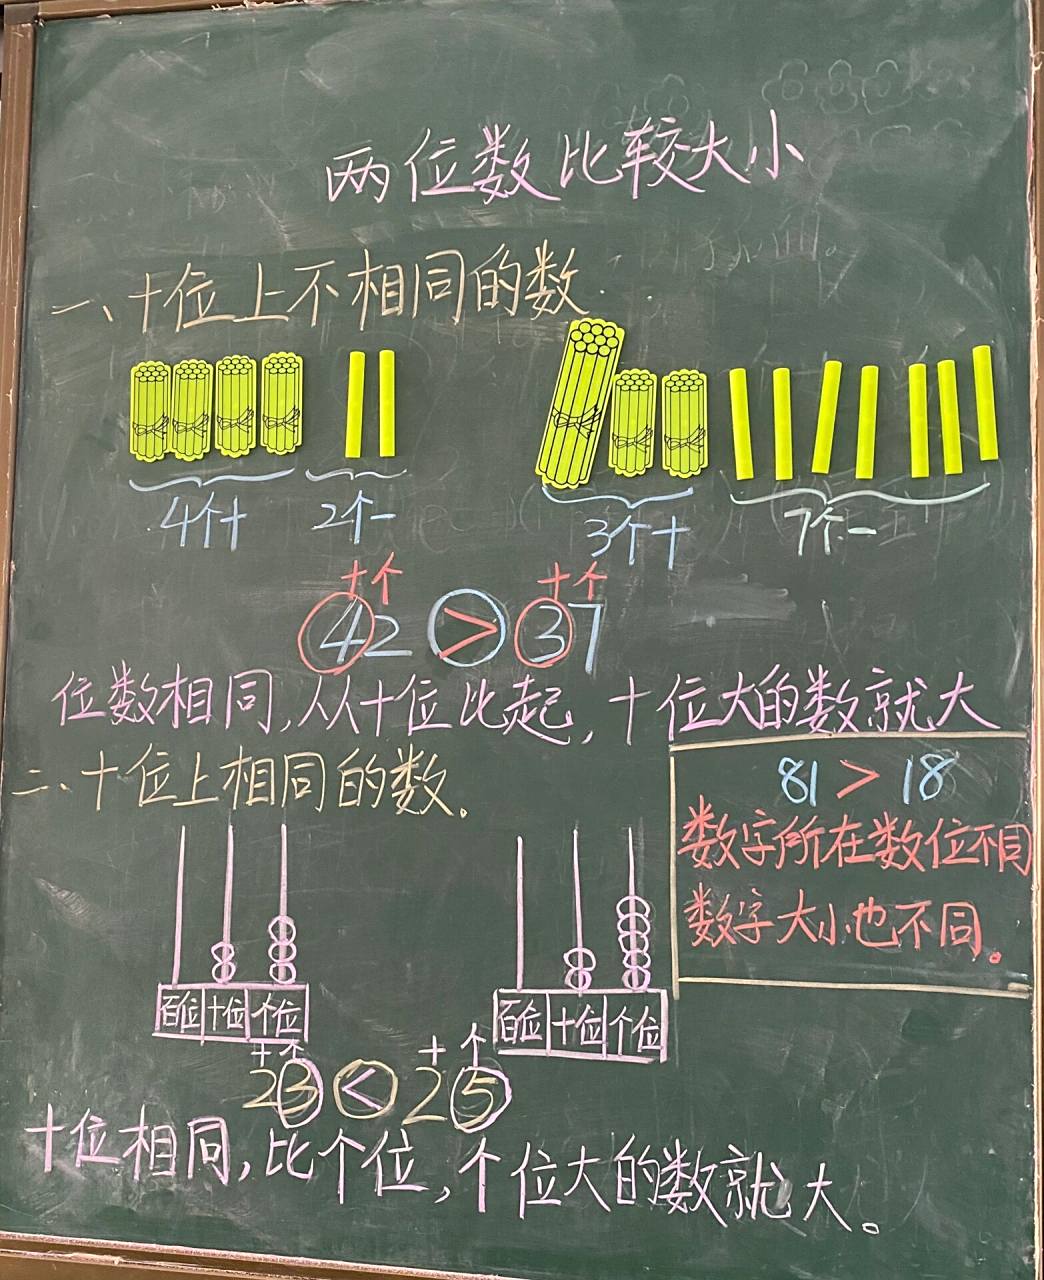 两位数比较大小
一、十位上不相同的数
4个十 2个一 3个十 7个一
十个 十个
42 > 37
位数相同,从十位比起,十位大的数就大
二、十位上相同的数。
81 > 18
数字所在数位不同
数字大小也不同。
百位 十位 个位 百位 十位 个位
十个 十个
23 < 25
十位相同,比个位,个位大的数就大。